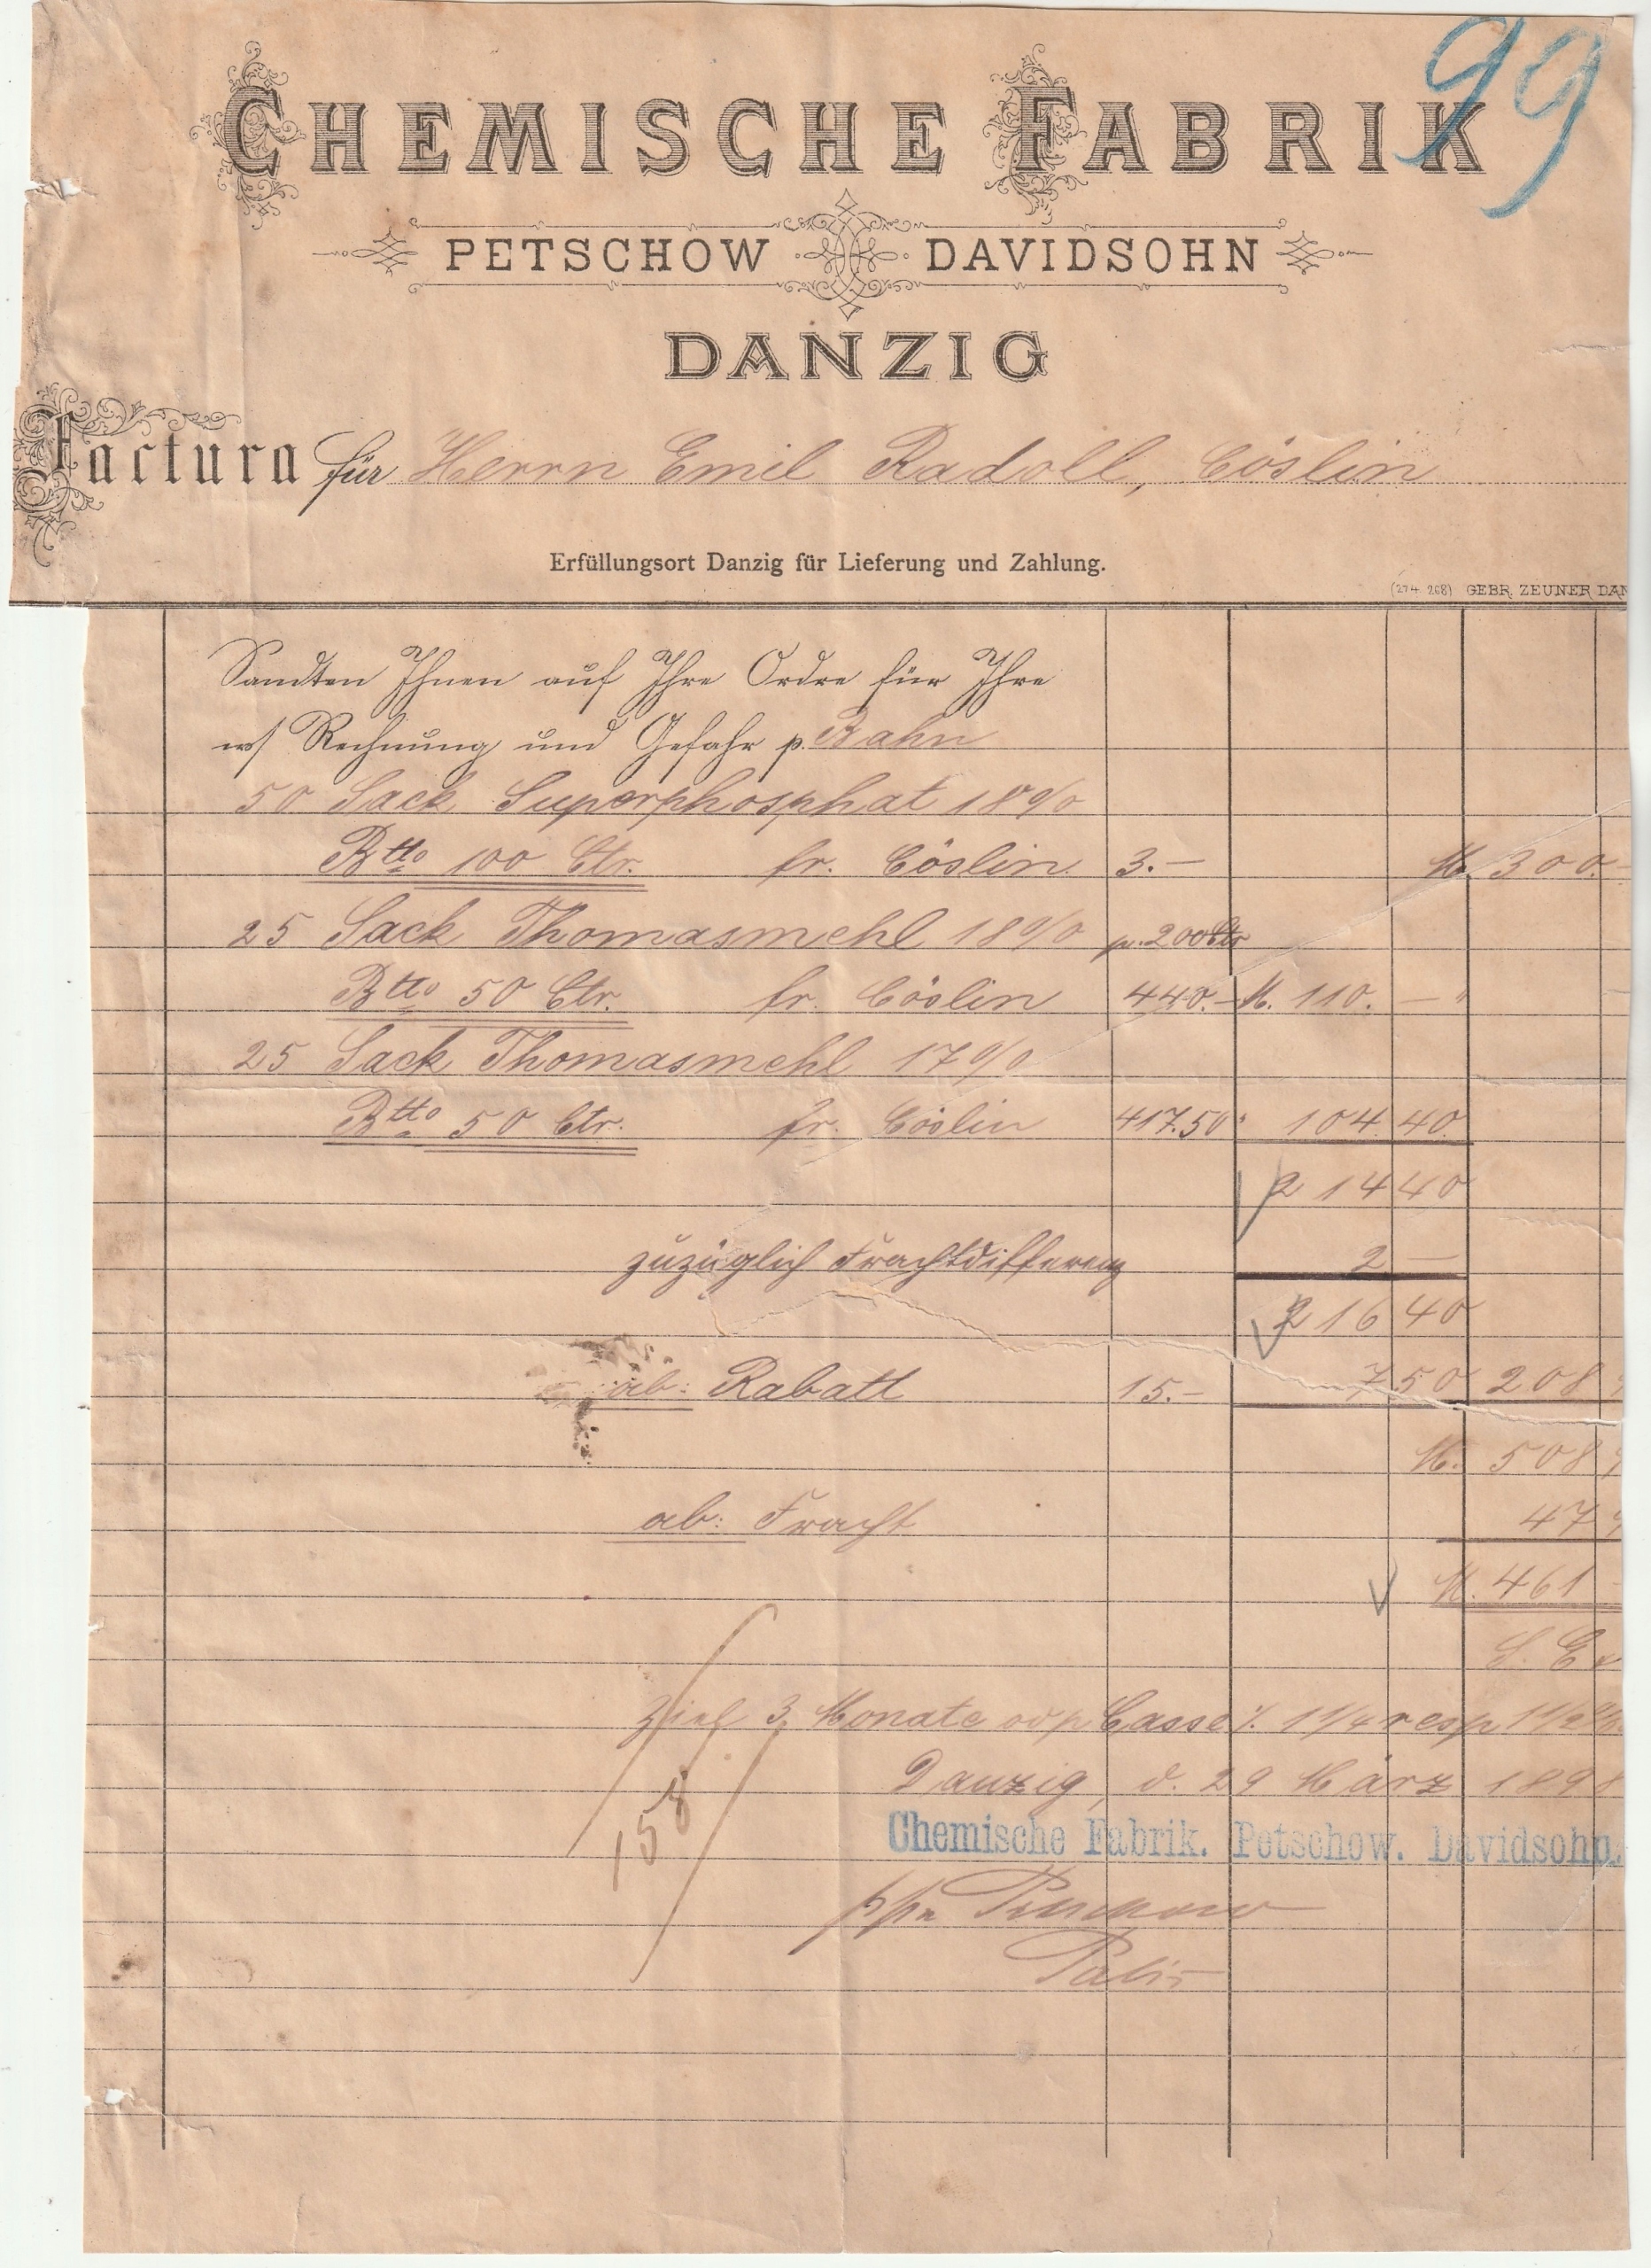 99
CHEMISCHE FABRIK
PETSCHOW DAVIDSOHN
DANZIG
Factura für Herrn Emil Radoll, Cöslin
Erfüllungsort Danzig für Lieferung und Zahlung.
(274 268) GEBR. ZEUNER DAN
Sandten Ihnen auf Ihre Ordre für Ihre
w/ Rechnung und Gefahr p. Bahn
50 Sack Superphosphat 18%
Btto 100 Ctr. fr. Cöslin 3.— M. 300.—
25 Sack Thomasmehl 18% p. 200 Ctr
Btto 50 Ctr. fr. Cöslin 440.— M. 110. — "
25 Sack Thomasmehl 17%
Btto 50 Ctr. fr. Cöslin 417.50 " 104.40
214 40
zuzüglich Frachtdifferenz 2 —
216 40
ab: Rabatt 15.— 7 50 208 9
M. 508 9
ab: Fracht 47 9
M. 461 -
S. E
Ziel 3 Monate od p Cassa ٪ 1 1/4 resp 1 1/2 %
Danzig, d. 29 März 1898
Chemische Fabrik. Petschow. Davidsohn.
158
ppa Petschow